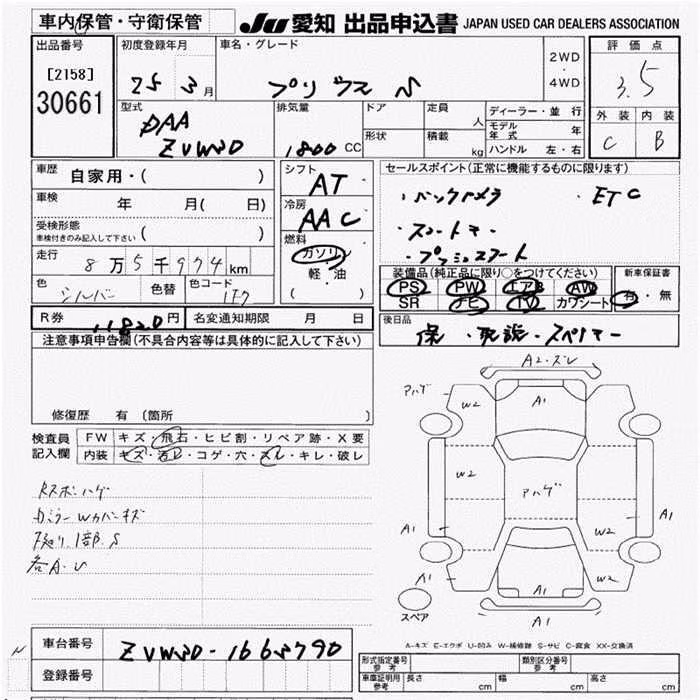 車内保管・守衛保管
JU 愛知 出品申込書 JAPAN USED CAR DEALERS ASSOCIATION
出品番号
[2158]
30661
初度登録年月
25 3月
車名・グレード
プリウス S
2WD
・
4WD
評価点
3.5
外装 内装
C B
型式
DAA
ZVW30
排気量
1800 CC
ドア
定員
人
形状
積載
kg
ディーラー・並行
モデル年式 年
ハンドル 左・右
車歴 自家用・( )
車検 年 月( 日)
受検形態
車検付きのみ記入して下さい ( )
走行
8万5千974km
色
シルバー
色替
色コード
1F7
シフト
AT
冷房
AAC
燃料
ガソリン
軽・油
( )
セールスポイント(正常に機能するものに限ります)
・バックカメラ ・ETC
・スマートキー
・プッシュスタート
装備品(純正品に限り○をつけてください)
PS PW エアB AW
SR ナビ TV カワシート
新車保証書
有・無
R券 11820円
名変通知期限 月 日
後日品
保・取説・スペアキー
注意事項申告欄(不具合内容等は具体的に記入して下さい)
修復歴 有 (箇所 )
検査員
記入欄
FW キズ・飛石・ヒビ割・リペア跡・X要
内装 キズ・汚レ・コゲ・穴・スレ・キレ・破レ
Rスポハゲ
各A.U
A2・ズレ
アハゲ
W2
A1
W2
アハゲ
A1
A1
W2
A1
W2
A1
A1
スペア
A-キズ E-エクボ U-凹み W-補修跡 S-サビ C-腐食 XX-交換済
車台番号 ZVW30-1665790
登録番号
形式指定番号
参考
類別区分番号
参考
車庫証明用
参考
長さ cm
幅 cm
高さ cm